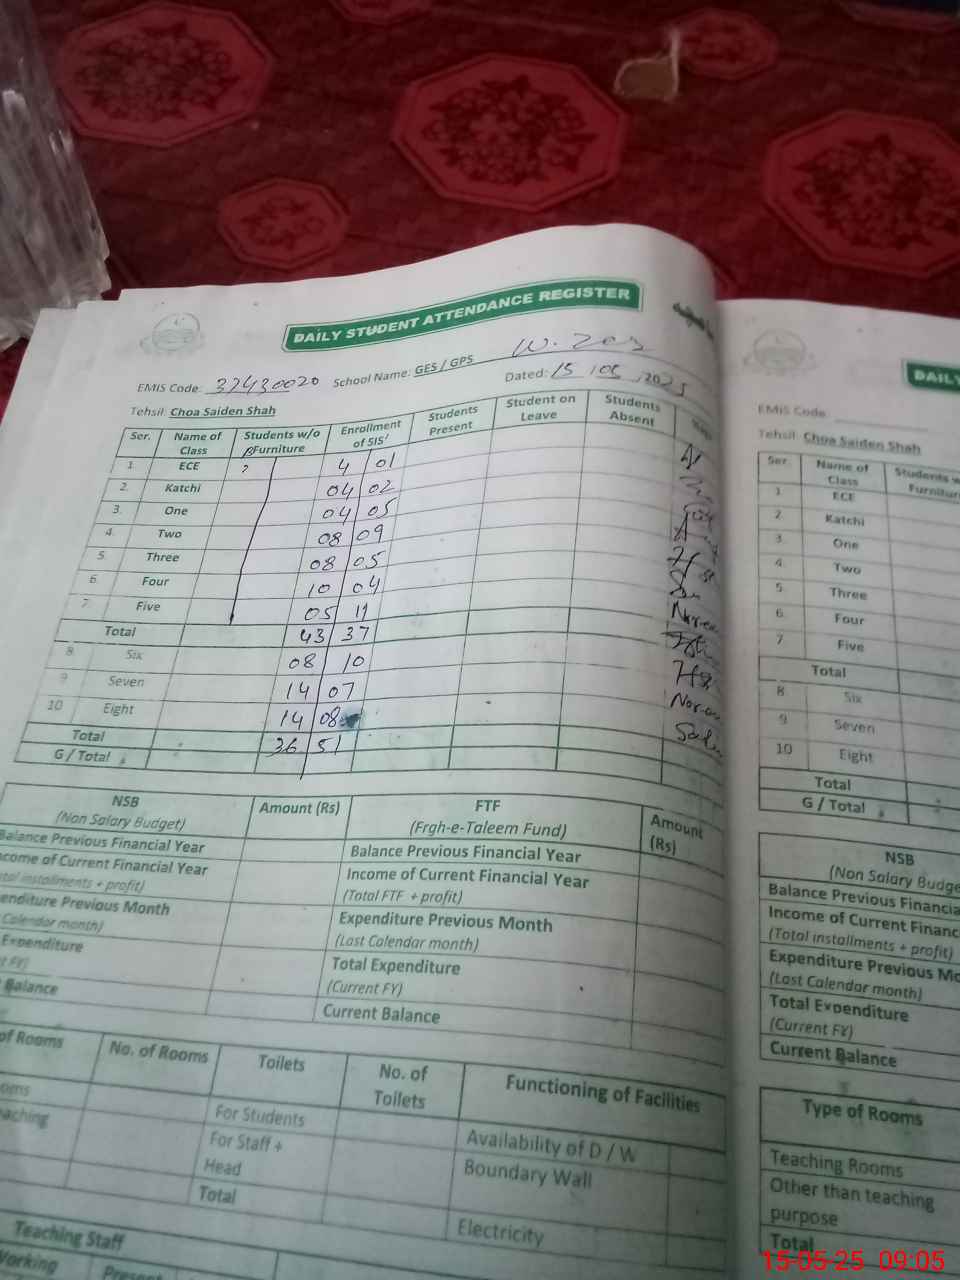 DAILY STUDENT ATTENDANCE REGISTER
EMIS Code: 37430020 School Name: GES / GPS
Dated: 15 / 05 / 2025
Tehsil: Choa Saiden Shah
Ser. Name of Class Students w/o Furniture Enrollment of SIS Students Present Student on Leave Students Absent
1. ECE 4 01
2. Katchi 04 02
3. One 04 05
4. Two 08 09
5. Three 08 05
6. Four 10 04
7. Five 05 11
Total 43 37
8 Six 08 10
9 Seven 14 07
10 Eight 14 08
Total 36 51
G / Total
NSB (Non Salary Budget) Amount (Rs) FTF (Frgh-e-Taleem Fund) Amount (Rs)
Balance Previous Financial Year Balance Previous Financial Year
Income of Current Financial Year Income of Current Financial Year
(Total FTF + profit)
Expenditure Previous Month Expenditure Previous Month
Calendar month) (Last Calendar month)
Expenditure Total Expenditure
(Current FY)
Balance Current Balance
of Rooms No. of Rooms Toilets No. of Toilets Functioning of Facilities
For Students Availability of D / W
For Staff + Head Boundary Wall
Total
Electricity
Teaching Staff
Working Present
EMIS Code
Tehsil Choa Saiden Shah
Ser. Name of Class Students
1 ECE
2 Katchi
3 One
4 Two
5 Three
6 Four
7 Five
Total
8 Six
9 Seven
10 Eight
Total
G / Total
NSB
(Non Salary
Balance Previous
Income of Current
(Total installments + profit)
Expenditure Previous
(Last Calendar month)
Total Expenditure
(Current FY)
Current Balance
Type of Rooms
Teaching Rooms
Other than teaching purpose
Total
15-05-25 09:05